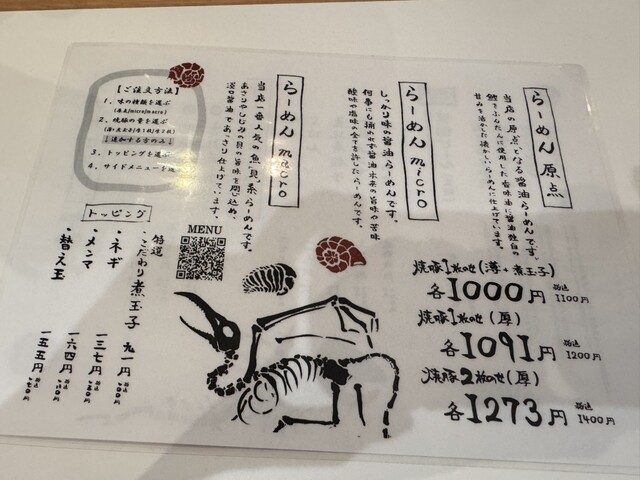 らーめん 原点
当店の原点となる醤油らーめんです。
鰹をふんだんに使用した香味油に醤油独自の
甘みを活かした懐かしいらーめんに仕上げています。
らーめん micro
しっかり味の醤油らーめんです。
何事にも捕われず醤油本来の旨味や苦味
酸味や塩味の全てを許したらーめんです。
らーめん macro
当店一番人気の魚貝系らーめんです。
あさりやしじみの貝の旨味を閉じ込め、
淡口醤油であっさり仕上げています。
【ご注文方法】
1、味の種類を選ぶ
(原点/micro/macro)
2、焼豚の量を選ぶ
↓追加する方のみ↓
3、トッピングを選ぶ
4、サイドメニューを選
トッピング
特選
・こだわり煮玉子 九一円 税込
・ネギ 一三七円 税込
・メンマ 一六四円 税込
・替え玉 一五五円 税込
MENU
焼豚1枚のせ(薄+煮玉子)
各1000円 税込1100円
焼豚1枚のせ(厚)
各1091円 税込1200円
焼豚2枚のせ(厚)
各1273円 税込1400円